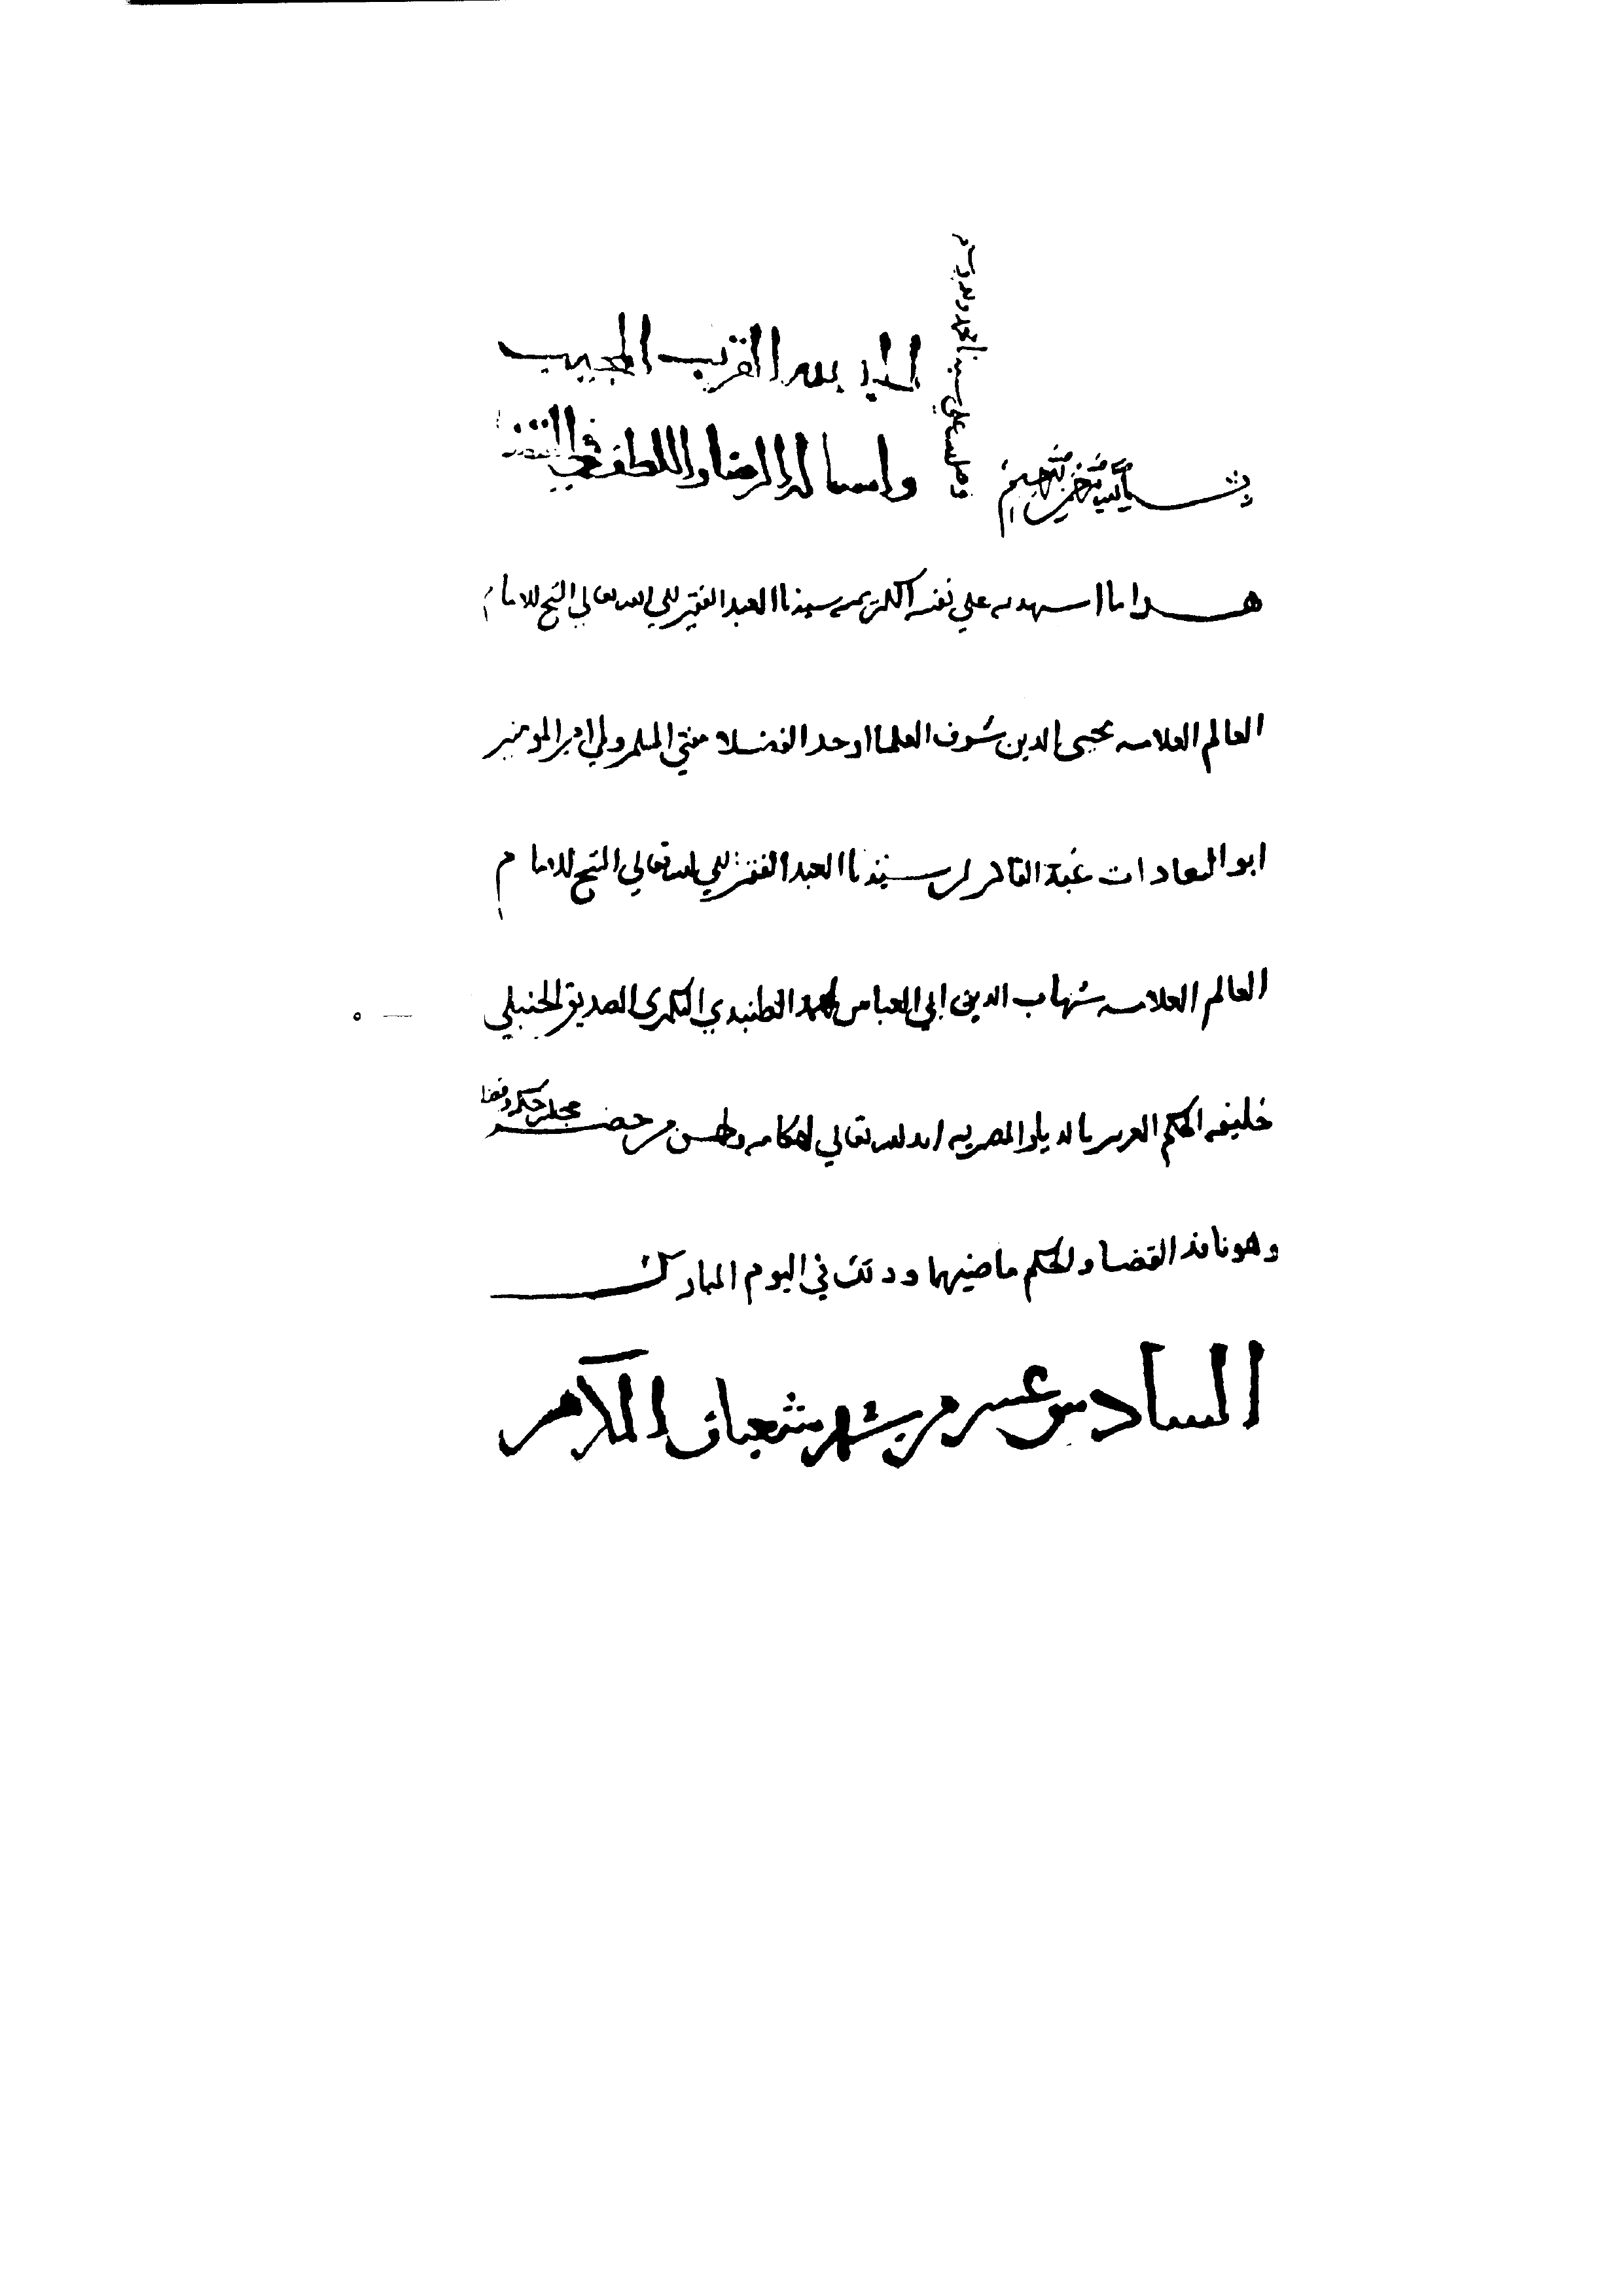 الحمد لله القريب المجيب
واساله الرضا واللطف في
وصلى الله على سيدنا محمد واله
بسم الله الرحمن الرحيم
هدا ما اسهد به علي نفسه الكريمه سيدنا العبد الفقير الي الله تعالي الشيخ الامام
العالم العلامه محيى الدين شرف العلما اوحد الفضلا مفتي المسلمين ولي امير المومنين
ابو السعادات عبد القادر بن سيدنا العبد الفقير الي الله تعالي الشيخ الامام
العالم العلامه شهاب الدين ابي العباس احمد الطنبدي البكرى الصديقي الحنبلي
خليفه الحكم العزيز بالديار المصريه ايد الله تعالي احكامه واحسن من حضر مجلس حكمه وقضا
وهو نافذ القضا والحكم ماضيهما وذلك في اليوم المبارك
السادس عشر من شهر شعبان المكرم